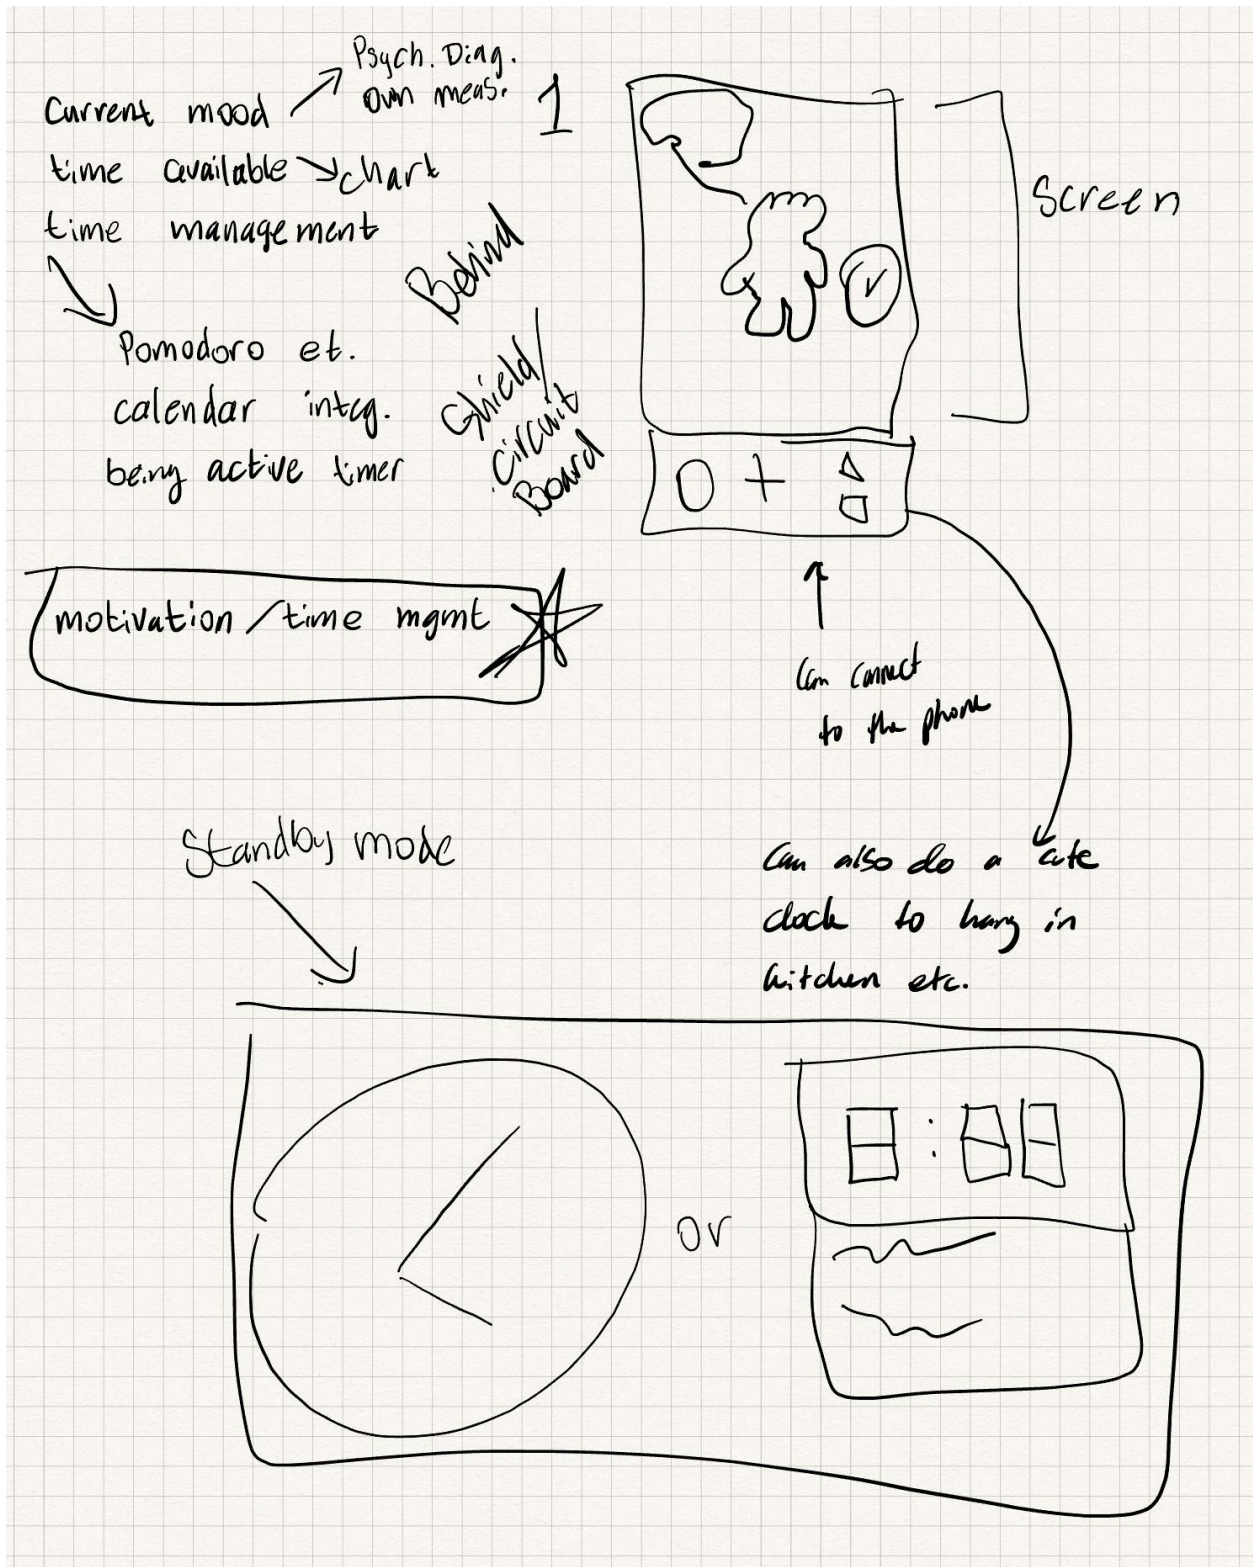 Psych. Diag.
own meas.
Current mood
time available
chart
time management
Pomodoro et.
calendar integ.
being active timer
1
Screen
Behind
Shield/
Circuit
Board
motivation / time mgmt
Can connect
to the phone
Standby mode
Can also do a cute
clock to hang in
kitchen etc.
or
8:88